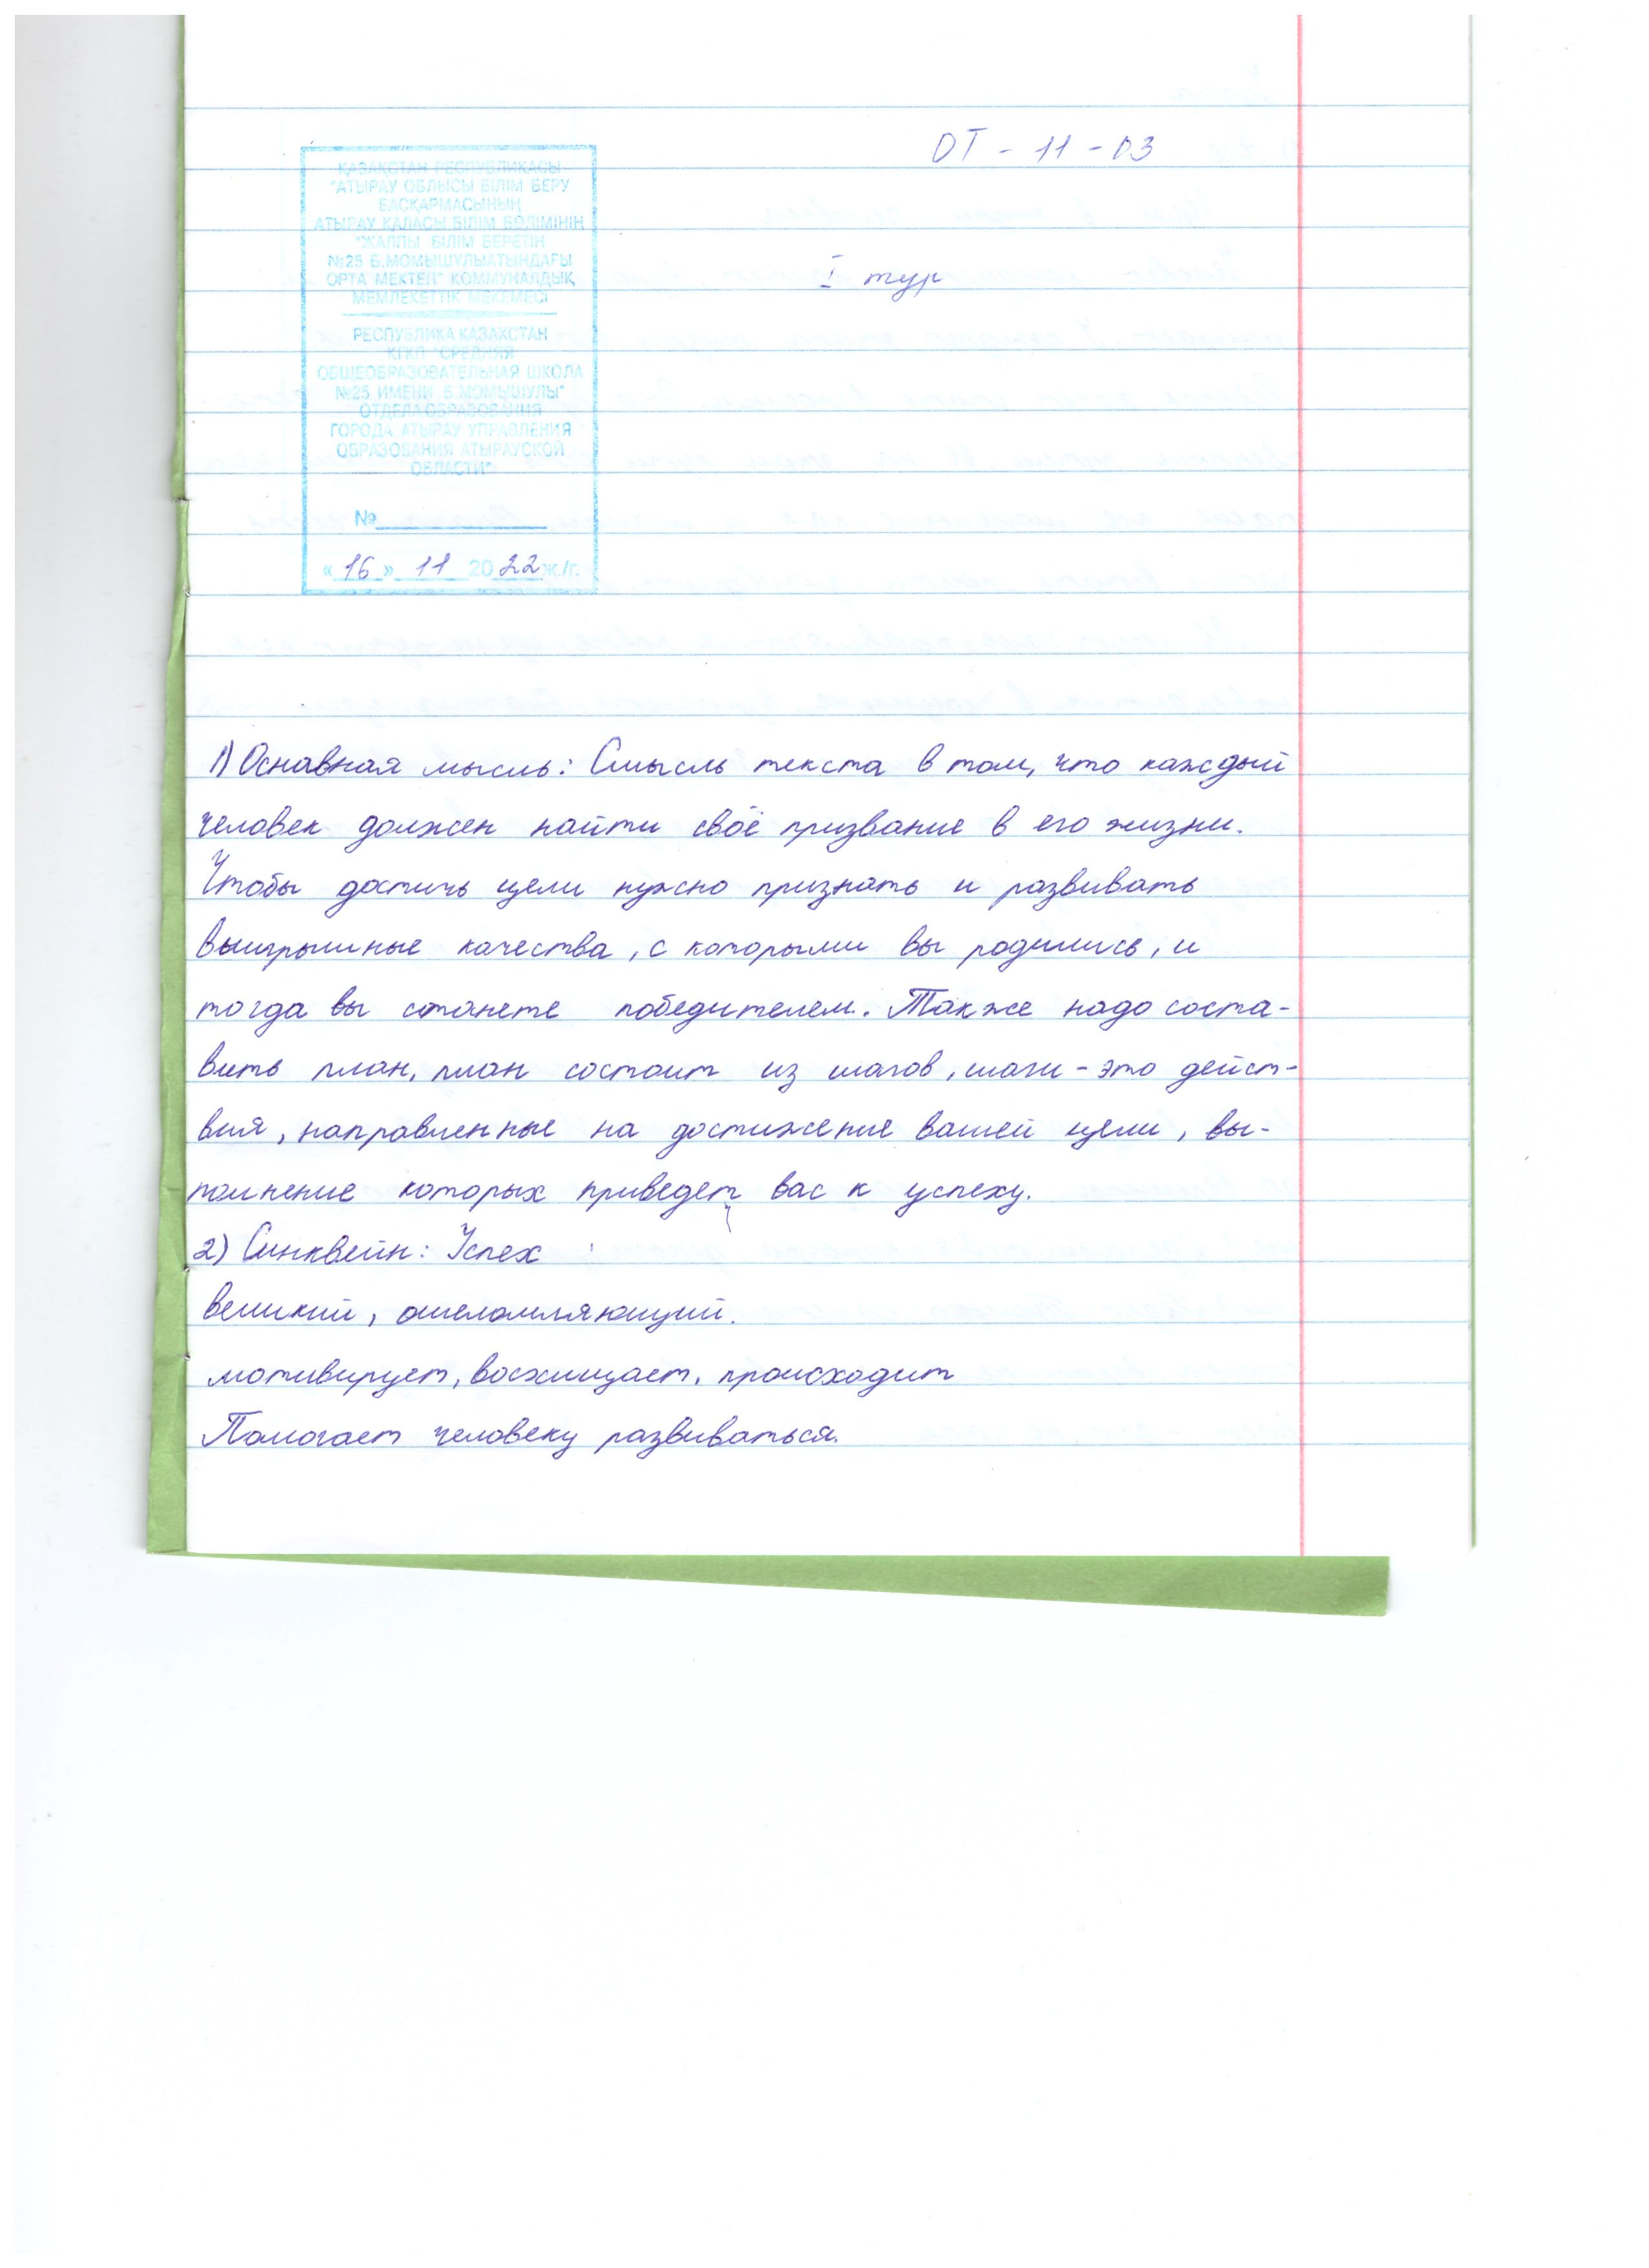 ОТ - 11 - 03
ҚАЗАҚСТАН РЕСПУБЛИКАСЫ
"АТЫРАУ ОБЛЫСЫ БІЛІМ БЕРУ
БАСҚАРМАСЫНЫҢ
АТЫРАУ ҚАЛАСЫ БІЛІМ БӨЛІМІНІҢ
"ЖАЛПЫ БІЛІМ БЕРЕТІН
№25 Б.МОМЫШҰЛЫ АТЫНДАҒЫ
ОРТА МЕКТЕП" КОММУНАЛДЫҚ
МЕМЛЕКЕТТІК МЕКЕМЕСІ
РЕСПУБЛИКА КАЗАХСТАН
КГКП "СРЕДНЯЯ
ОБЩЕОБРАЗОВАТЕЛЬНАЯ ШКОЛА
№25 ИМЕНИ Б.МОМЫШУЛЫ"
ОТДЕЛА ОБРАЗОВАНИЯ
ГОРОДА АТЫРАУ УПРАВЛЕНИЯ
ОБРАЗОВАНИЯ АТЫРАУСКОЙ
ОБЛАСТИ"
№
«16» 11 2022 ж./г.
I тур
1) Основная мысль: Смысль текста в том, что каждый
человек должен найти своё призвание в его жизни.
Чтобы достичь цели нужно признать и развивать
выигрышные качества, с которыми вы родились, и
тогда вы станете победителем. Также надо соста-
вить план, план состоит из шагов, шаги - это дейст-
вия, направленные на достижение вашей цели, вы-
полнение которых приведет вас к успеху.
2) Синквейн: Успех
великий, ошеломляющий.
мотивирует, восхищает, происходит
Помогает человеку развиваться.